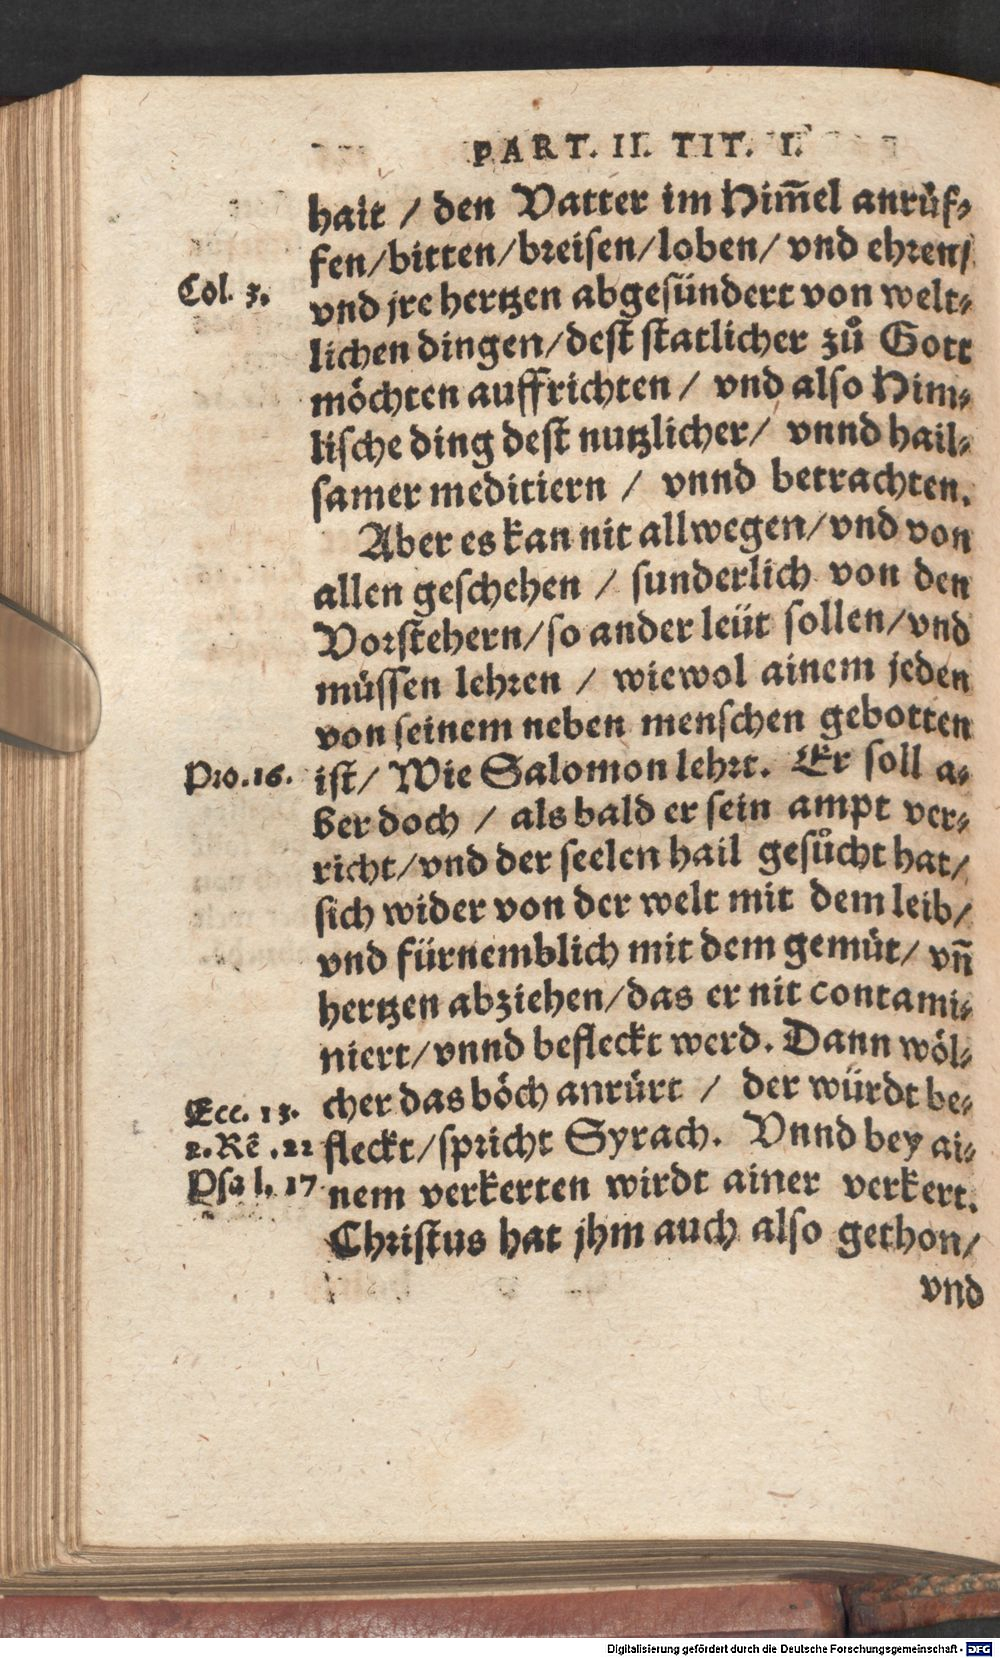 PART. II. TIT. I.
hait / den Vatter im Him̄el anrüf⸗
fen/bitten/breisen/loben/ vnd ehren/
Col. 3.
vnd jre hertzen abgesündert von welt⸗
lichen dingen/dest statlicher zů Gott
möchten auffrichten / vnd also Him⸗
lische ding dest nutzlicher/ vnnd hail⸗
samer meditiern / vnnd betrachten.
Aber es kan nit allwegen/vnd von
allen geschehen / sunderlich von den
Vorstehern/so ander leüt sollen/vnd
müssen lehren / wiewol ainem jeden
von seinem neben menschen gebotten
Pro.16.
ist/ Wie Salomon lehrt. Er soll a⸗
ber doch / als bald er sein ampt ver⸗
richt/vnd der seelen hail gesůcht hat/
sich wider von der welt mit dem leib/
vnd fürnemblich mit dem gemüt/ vn̄
hertzen abziehen/das er nit contami⸗
niert/vnnd befleckt werd. Dann wöl⸗
Ecc. 13.
cher das böch anrürt / der würdt be⸗
2.Rē .22
fleckt/spricht Syrach. Vnnd bey ai⸗
Psal. 17
nem verkerten wirdt ainer verkert.
Christus hat jhm auch also gethon/
vnd
Digitalisierung gefördert durch die Deutsche Forschungsgemeinschaft - DFG